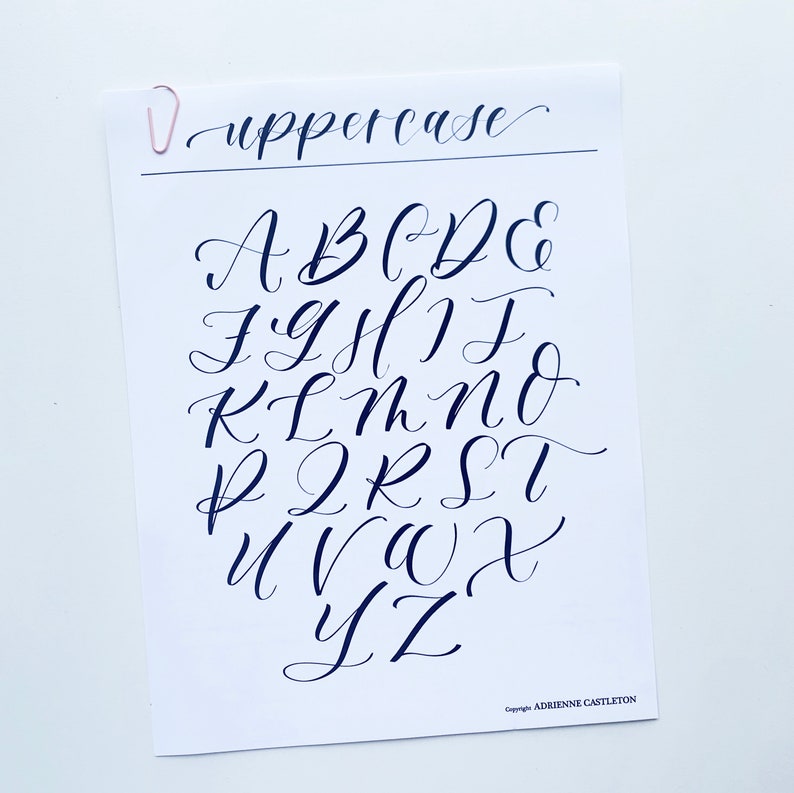 uppercase
A B C D E
F G H I J
K L M N O
P Q R S T
U V W X
Y Z
Copyright ADRIENNE CASTLETON